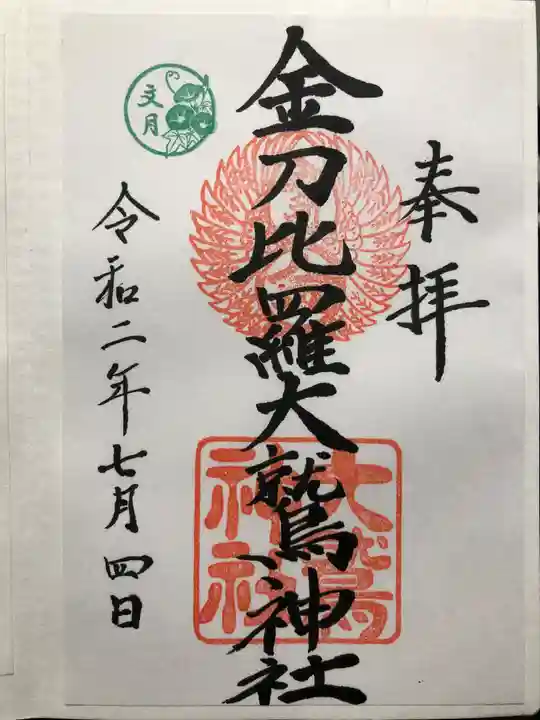 奉拝
金刀比羅大鷲神社
文月
令和二年七月四日